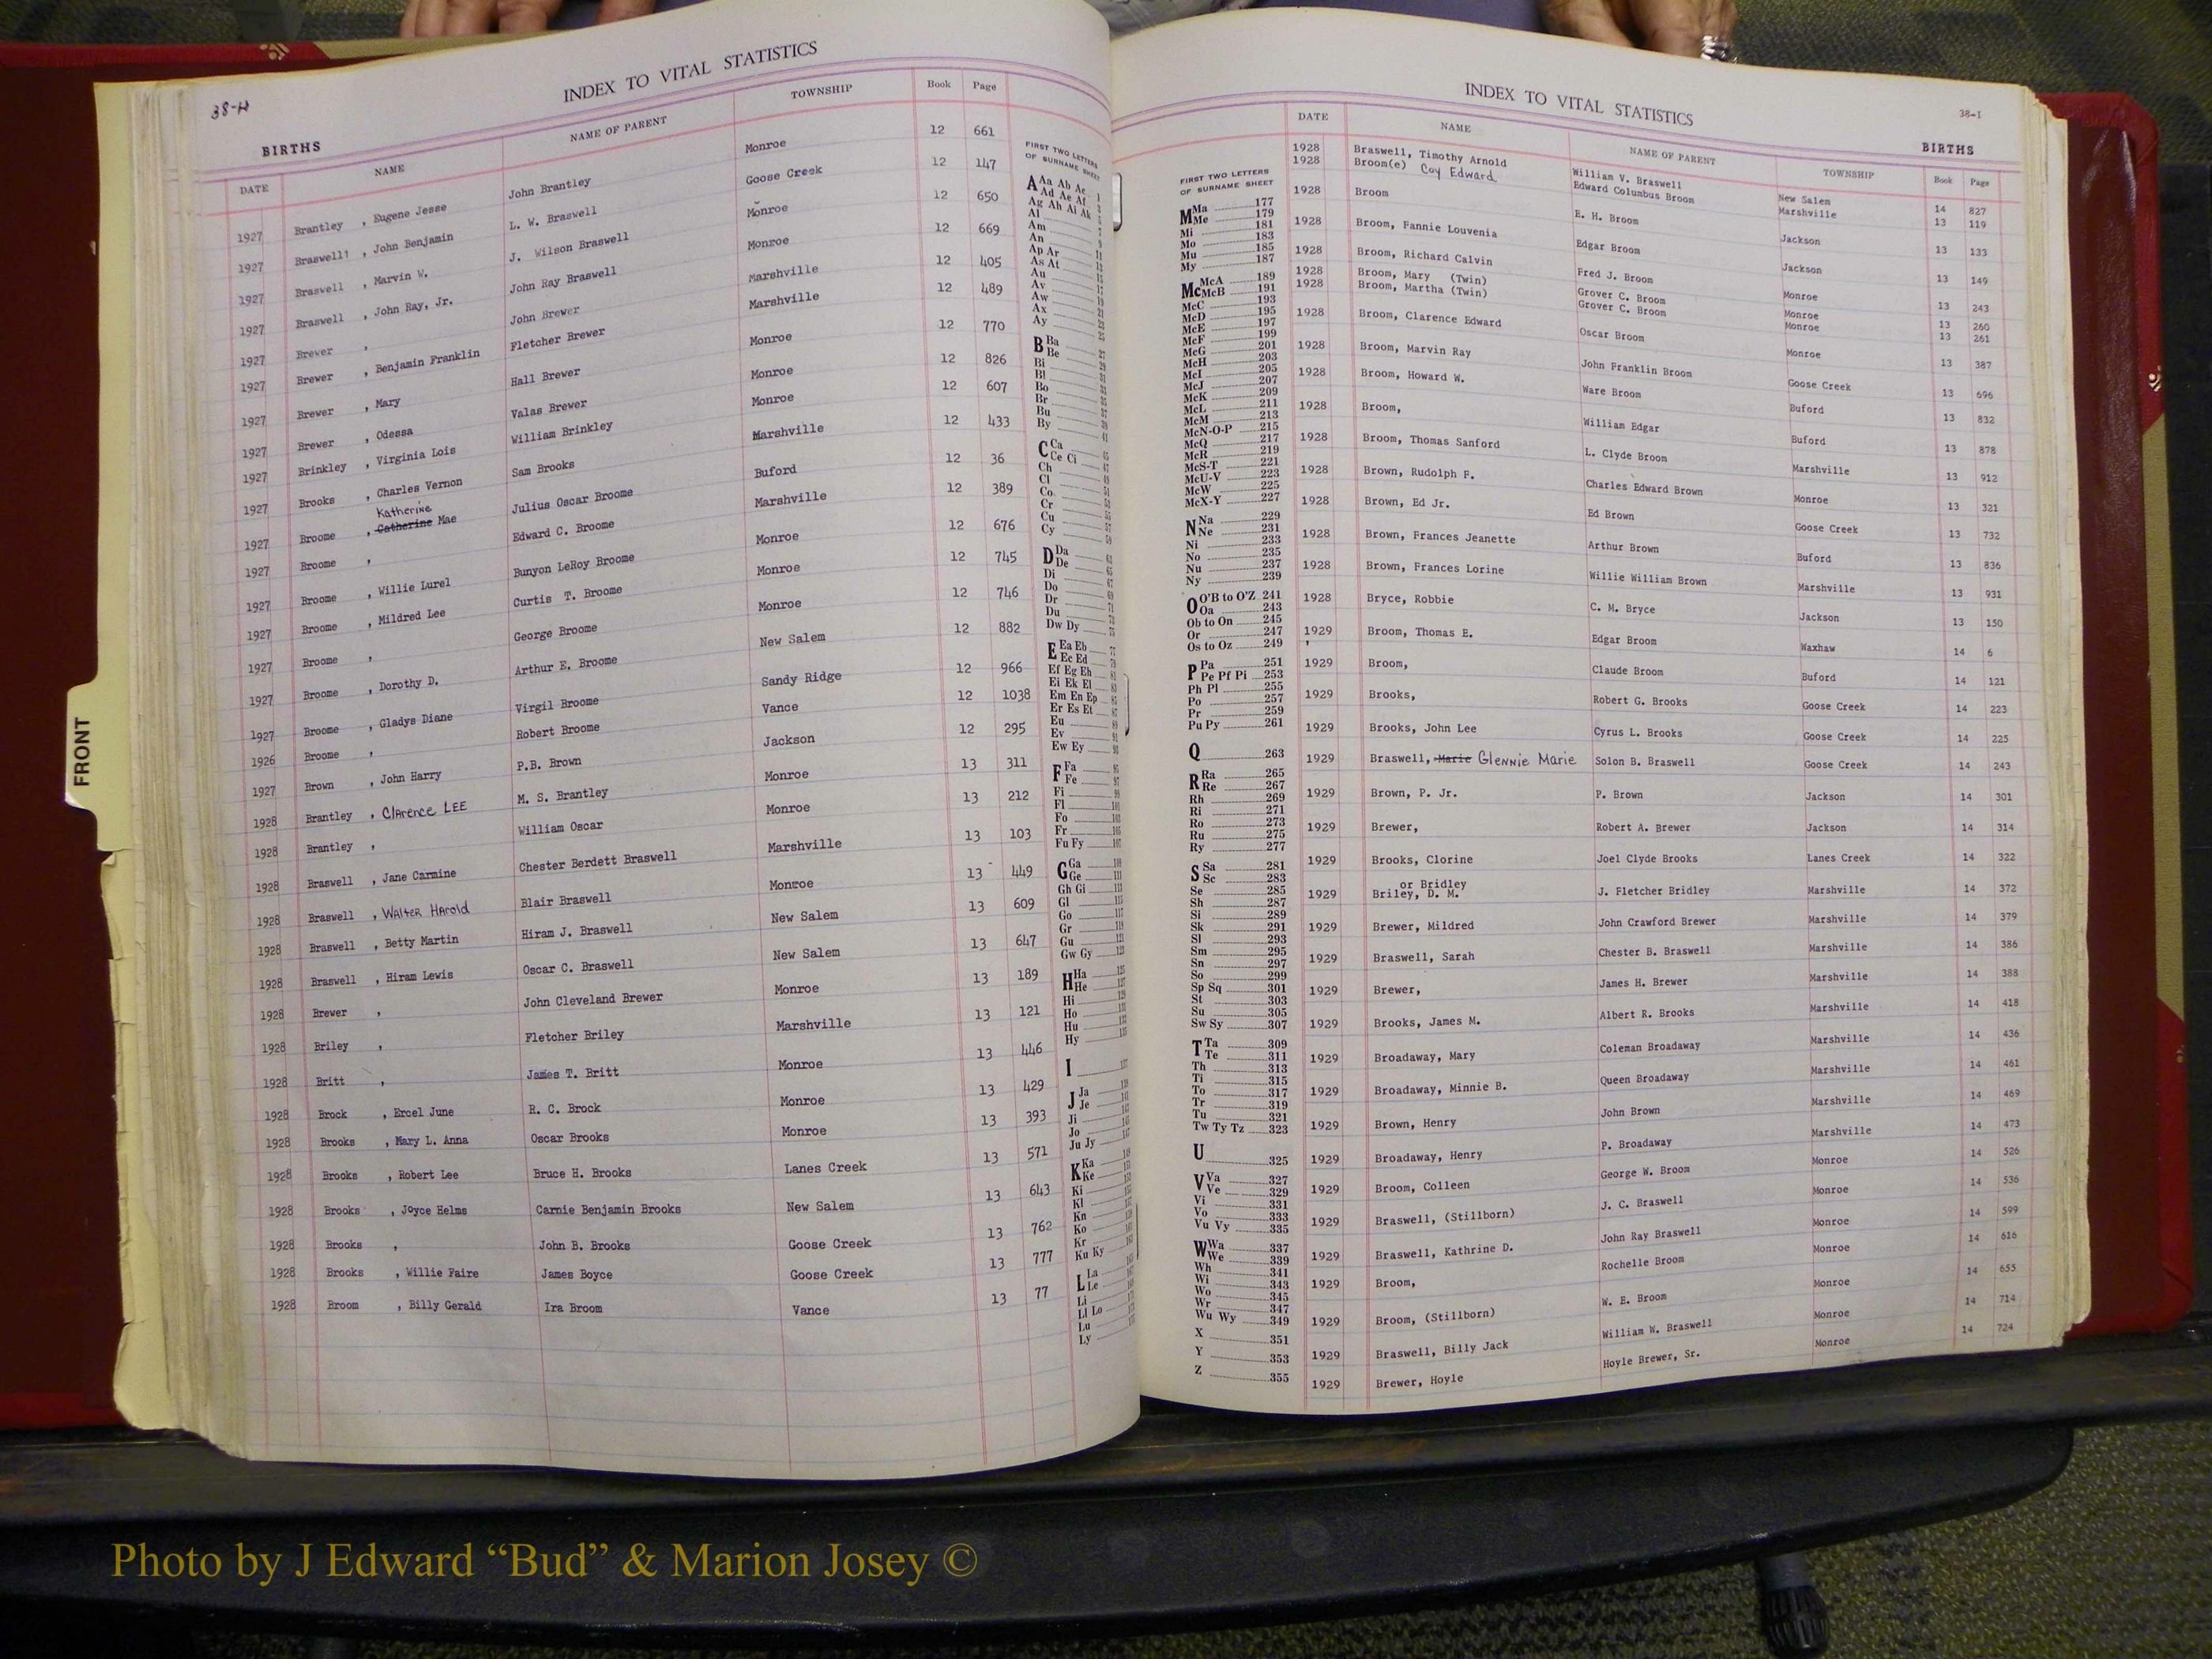 38-H
INDEX TO VITAL STATISTICS
BIRTHS
DATE NAME NAME OF PARENT TOWNSHIP Book Page
1927 Brantley , Eugene Jesse John Brantley Monroe 12 661
1927 Braswell , John Benjamin L. W. Braswell Goose Creek 12 147
1927 Braswell , Marvin W. J. Wilson Braswell Monroe 12 650
1927 Braswell , John Ray, Jr. John Ray Braswell Monroe 12 669
1927 Brewer , John Brewer Marshville 12 405
1927 Brewer , Benjamin Franklin Fletcher Brewer Marshville 12 489
1927 Brewer , Mary Hall Brewer Monroe 12 770
1927 Brewer , Odessa Valas Brewer Monroe 12 826
1927 Brinkley , Virginia Lois William Brinkley Monroe 12 607
1927 Brooks , Charles Vernon Sam Brooks Marshville 12 433
Katherine
1927 Broome , Catherine Mae Julius Oscar Broome Buford 12 36
1927 Broome , Edward C. Broome Marshville 12 389
1927 Broome , Willie Lurel Bunyon LeRoy Broome Monroe 12 676
1927 Broome , Mildred Lee Curtis T. Broome Monroe 12 745
1927 Broome , George Broome Monroe 12 746
1927 Broome , Dorothy D. Arthur E. Broome New Salem 12 882
1927 Broome , Gladys Diane Virgil Broome Sandy Ridge 12 966
1926 Broome , Robert Broome Vance 12 1038
1927 Brown , John Harry P.B. Brown Jackson 12 295
1928 Brantley , Clarence LEE M. S. Brantley Monroe 13 311
1928 Brantley , William Oscar Monroe 13 212
1928 Braswell , Jane Carmine Chester Berdett Braswell Marshville 13 103
1928 Braswell , Walter Harold Blair Braswell Monroe 13 449
1928 Braswell , Betty Martin Hiram J. Braswell New Salem 13 609
1928 Braswell , Hiram Lewis Oscar C. Braswell New Salem 13 647
1928 Brewer , John Cleveland Brewer Monroe 13 189
1928 Briley , Fletcher Briley Marshville 13 121
1928 Britt , James T. Britt Monroe 13 446
1928 Brock , Ercel June R. C. Brock Monroe 13 429
1928 Brooks , Mary L. Anna Oscar Brooks Monroe 13 393
1928 Brooks , Robert Lee Bruce H. Brooks Lanes Creek 13 571
1928 Brooks , Joyce Helms Carnie Benjamin Brooks New Salem 13 643
1928 Brooks , John B. Brooks Goose Creek 13 762
1928 Brooks , Willie Faire James Boyce Goose Creek 13 777
1928 Broom , Billy Gerald Ira Broom Vance 13 77
FRONT
FIRST TWO LETTERS
OF SURNAME SHEET
A Aa Ab Ac
Ad Ae Af
Ag Ah Ai Ak
Al
Am
An
Ap Ar
As At
Au
Av
Aw
Ax
Ay
B Ba
Be
Bi
Bl
Bo
Br
Bu
By
C Ca
Ce Ci
Ch
Cl
Co
Cr
Cu
Cy
D Da
De
Di
Do
Dr
Du
Dw Dy
E Ea Eb
Ec Ed
Ef Eg Eh
Ei Ek El
Em En Ep
Er Es Et
Eu
Ev
Ew Ey
F Fa
Fe
Fi
Fl
Fo
Fr
Fu Fy
G Ga
Ge
Gh Gi
Gl
Go
Gr
Gu
Gw Gy
H Ha
He
Hi
Ho
Hu
Hy
I
J Ja
Je
Ji
Jo
Ju Jy
K Ka
Ke
Ki
Kl
Kn
Ko
Kr
Ku Ky
L La
Le
Li
Ll Lo
Lu
Ly
INDEX TO VITAL STATISTICS
38-I
BIRTHS
FIRST TWO LETTERS
OF SURNAME SHEET
M Ma 177
Me 179
Mi 181
Mo 183
Mu 185
My 187
Mc McA 189
McB 191
McC 193
McD 195
McE 197
McF 199
McG 201
McH 203
McI 205
McJ 207
McK 209
McL 211
McM 213
McN-O-P 215
McQ 217
McR 219
McS-T 221
McU-V 223
McW 225
McX-Y 227
N Na 229
Ne 231
Ni 233
No 235
Nu 237
Ny 239
O O'B to O'Z 241
Oa 243
Ob to On 245
Or 247
Os to Oz 249
P Pa 251
Pe Pf Pi 253
Ph Pl 255
Po 257
Pr 259
Pu Py 261
Q 263
R Ra 265
Re 267
Rh 269
Ri 271
Ro 273
Ru 275
Ry 277
S Sa 281
Sc 283
Se 285
Sh 287
Si 289
Sk 291
Sl 293
Sm 295
Sn 297
So 299
Sp Sq 301
St 303
Su 305
Sw Sy 307
T Ta 309
Te 311
Th 313
Ti 315
To 317
Tr 319
Tu 321
Tw Ty Tz 323
U 325
V Va 327
Ve 329
Vi 331
Vo 333
Vu Vy 335
W Wa 337
We 339
Wh 341
Wi 343
Wo 345
Wr 347
Wu Wy 349
X 351
Y 353
Z 355
DATE NAME NAME OF PARENT TOWNSHIP Book Page
1928 Braswell, Timothy Arnold William V. Braswell New Salem 14 827
1928 Broom(e) Coy Edward Edward Columbus Broom Marshville 13 119
1928 Broom E. H. Broom Jackson 13 133
1928 Broom, Fannie Louvenia Edgar Broom Jackson 13 149
1928 Broom, Richard Calvin Fred J. Broom Monroe 13 243
1928 Broom, Mary (Twin) Grover C. Broom Monroe 13 260
1928 Broom, Martha (Twin) Grover C. Broom Monroe 13 261
1928 Broom, Clarence Edward Oscar Broom Monroe 13 387
1928 Broom, Marvin Ray John Franklin Broom Goose Creek 13 696
1928 Broom, Howard W. Ware Broom Buford 13 832
1928 Broom, William Edgar Buford 13 878
1928 Broom, Thomas Sanford L. Clyde Broom Marshville 13 912
1928 Brown, Rudolph F. Charles Edward Brown Monroe 13 321
1928 Brown, Ed Jr. Ed Brown Goose Creek 13 732
1928 Brown, Frances Jeanette Arthur Brown Buford 13 836
1928 Brown, Frances Lorine Willie William Brown Marshville 13 931
1928 Bryce, Robbie C. M. Bryce Jackson 13 150
1929 Broom, Thomas E. Edgar Broom Waxhaw 14 6
1929 Broom, Claude Broom Buford 14 121
1929 Brooks, Robert G. Brooks Goose Creek 14 223
1929 Brooks, John Lee Cyrus L. Brooks Goose Creek 14 225
1929 Braswell, Marie Glennie Marie Solon B. Braswell Goose Creek 14 243
1929 Brown, P. Jr. P. Brown Jackson 14 301
1929 Brewer, Robert A. Brewer Jackson 14 314
1929 Brooks, Clorine Joel Clyde Brooks Lanes Creek 14 322
or Bridley
1929 Briley, D. M. J. Fletcher Bridley Marshville 14 372
1929 Brewer, Mildred John Crawford Brewer Marshville 14 379
1929 Braswell, Sarah Chester B. Braswell Marshville 14 386
1929 Brewer, James H. Brewer Marshville 14 388
1929 Brooks, James M. Albert R. Brooks Marshville 14 418
1929 Broadaway, Mary Coleman Broadaway Marshville 14 436
1929 Broadaway, Minnie B. Queen Broadaway Marshville 14 461
1929 Brown, Henry John Brown Marshville 14 469
1929 Broadaway, Henry P. Broadaway Marshville 14 473
1929 Broom, Colleen George W. Broom Monroe 14 526
1929 Braswell, (Stillborn) J. C. Braswell Monroe 14 536
1929 Braswell, Kathrine D. John Ray Braswell Monroe 14 599
1929 Broom, Rochelle Broom Monroe 14 616
1929 Broom, (Stillborn) W. E. Broom Monroe 14 655
1929 Braswell, Billy Jack William W. Braswell Monroe 14 714
1929 Brewer, Hoyle Hoyle Brewer, Sr. Monroe 14 724
Photo by J Edward “Bud” & Marion Josey ©